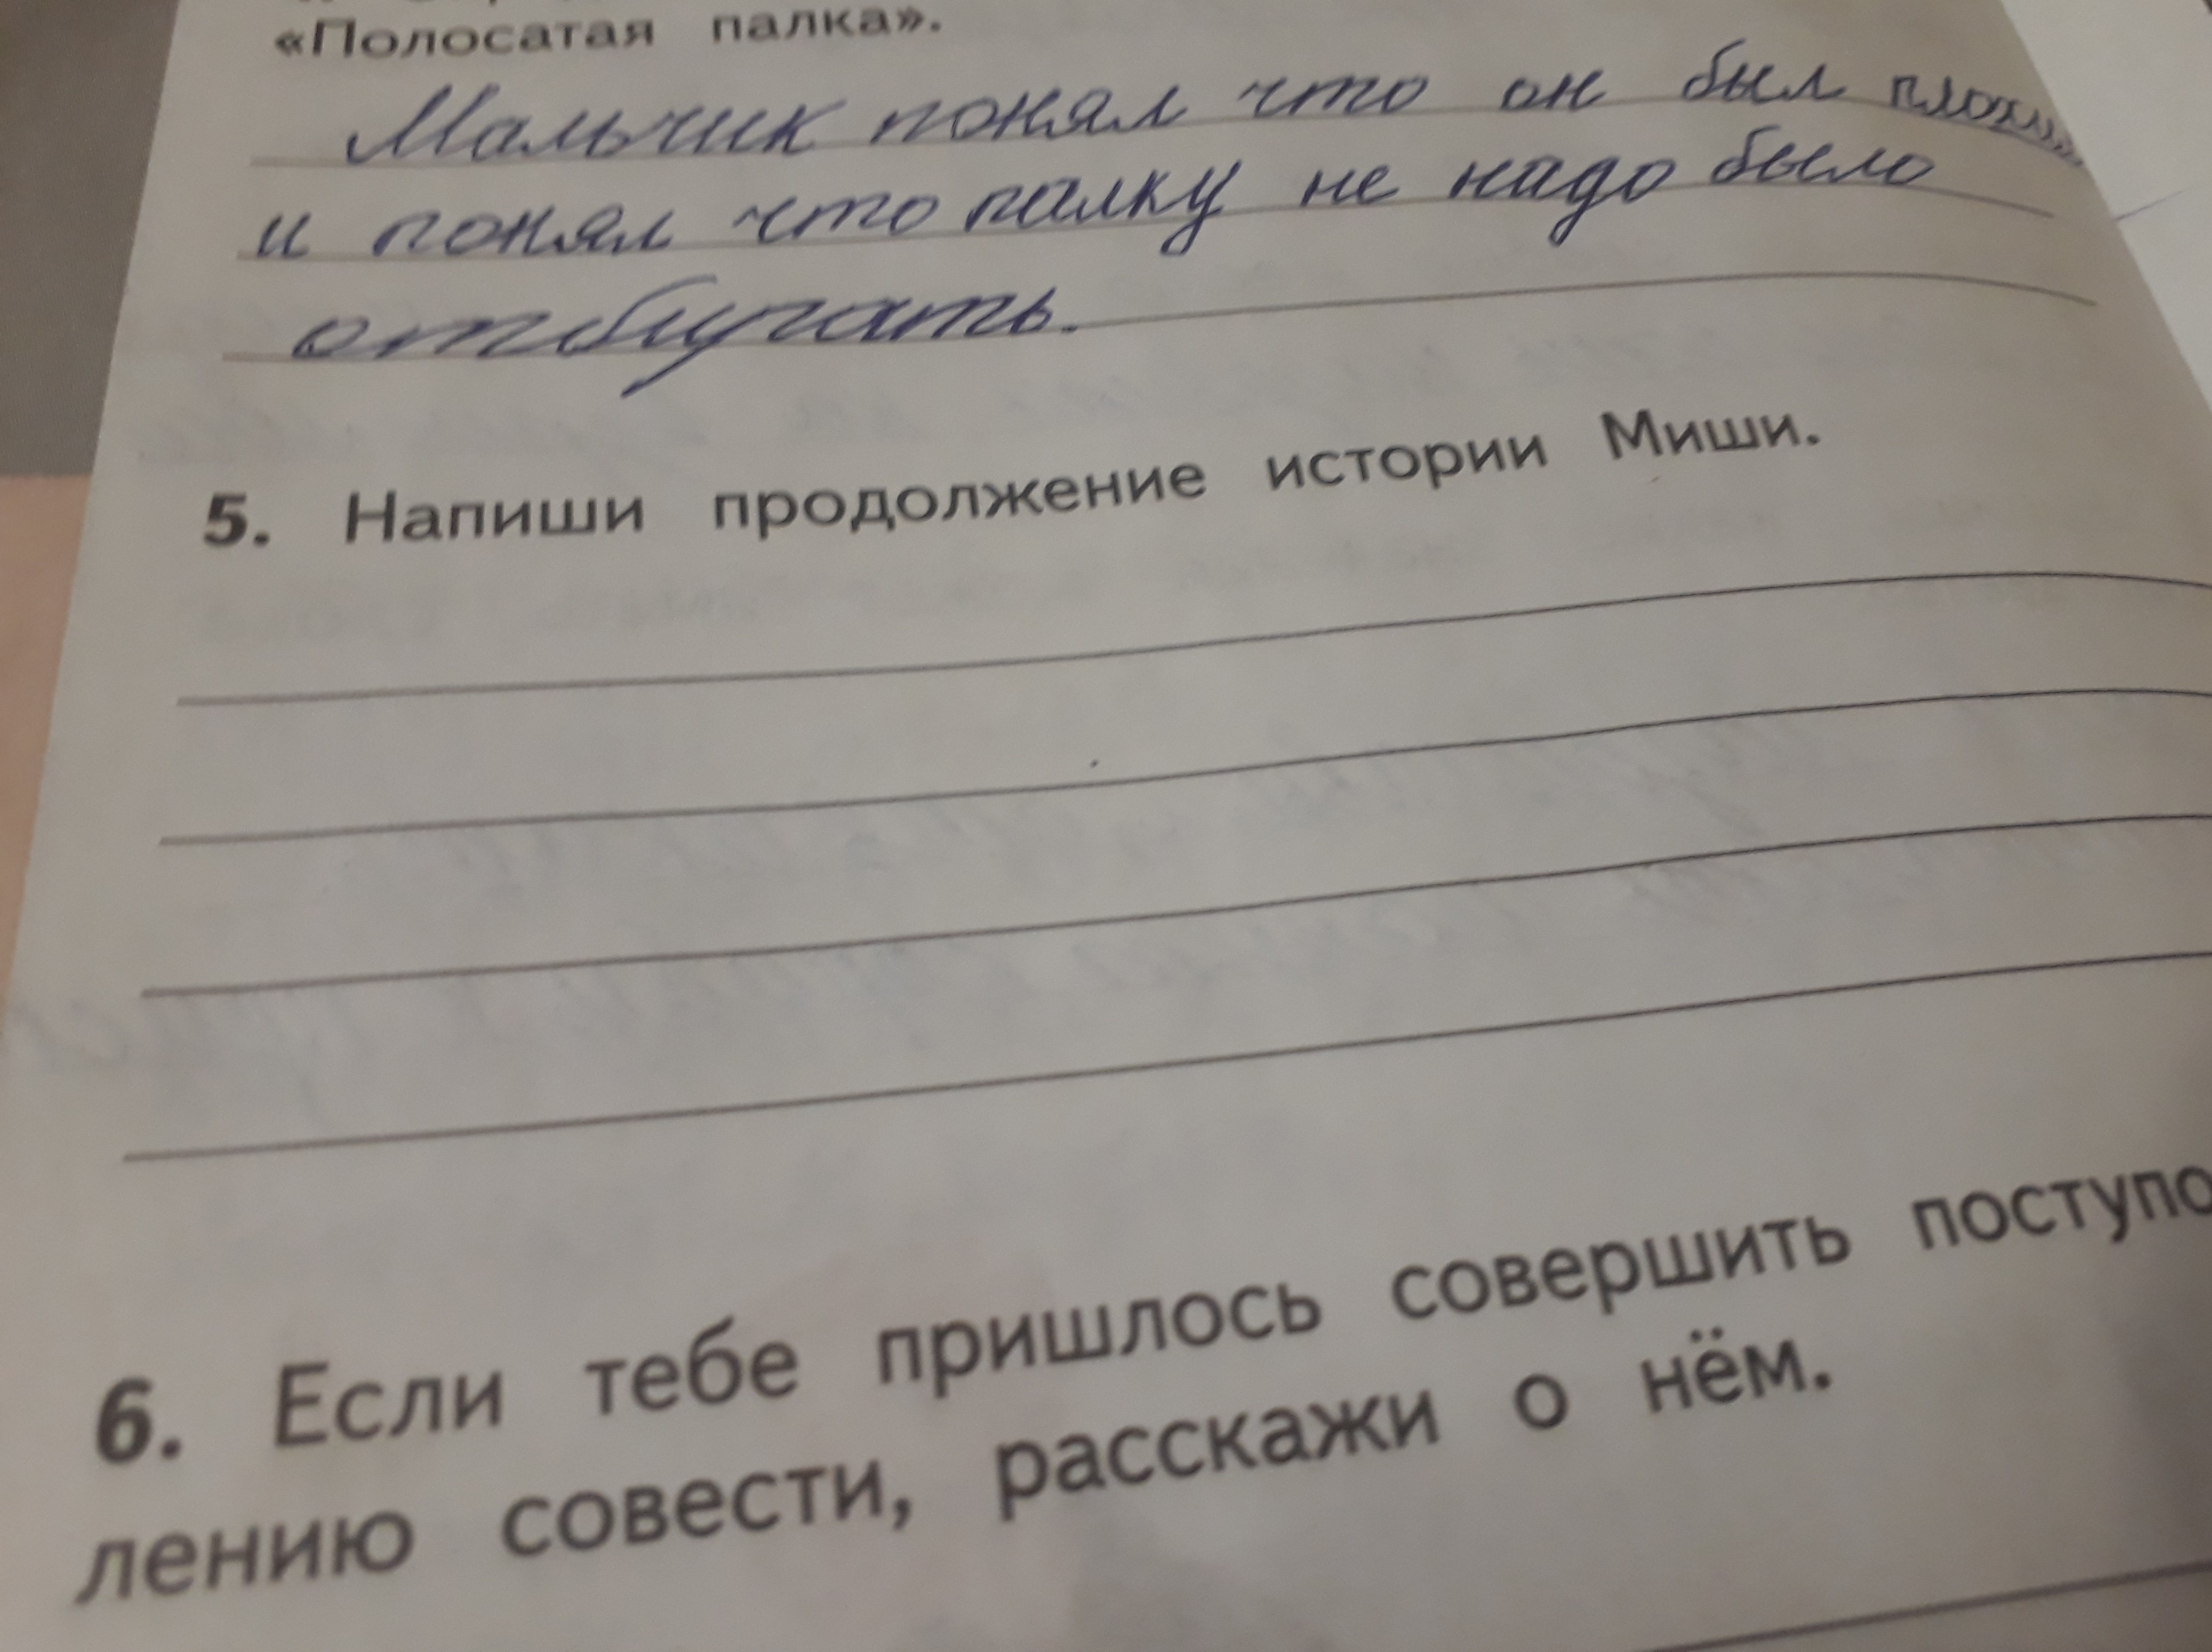 «Полосатая палка».
Мальчик понял что он был плохим
и понял что палку не надо было
отбирать.
5. Напиши продолжение истории Миши.
6. Если тебе пришлось совершить поступо
лению совести, расскажи о нём.